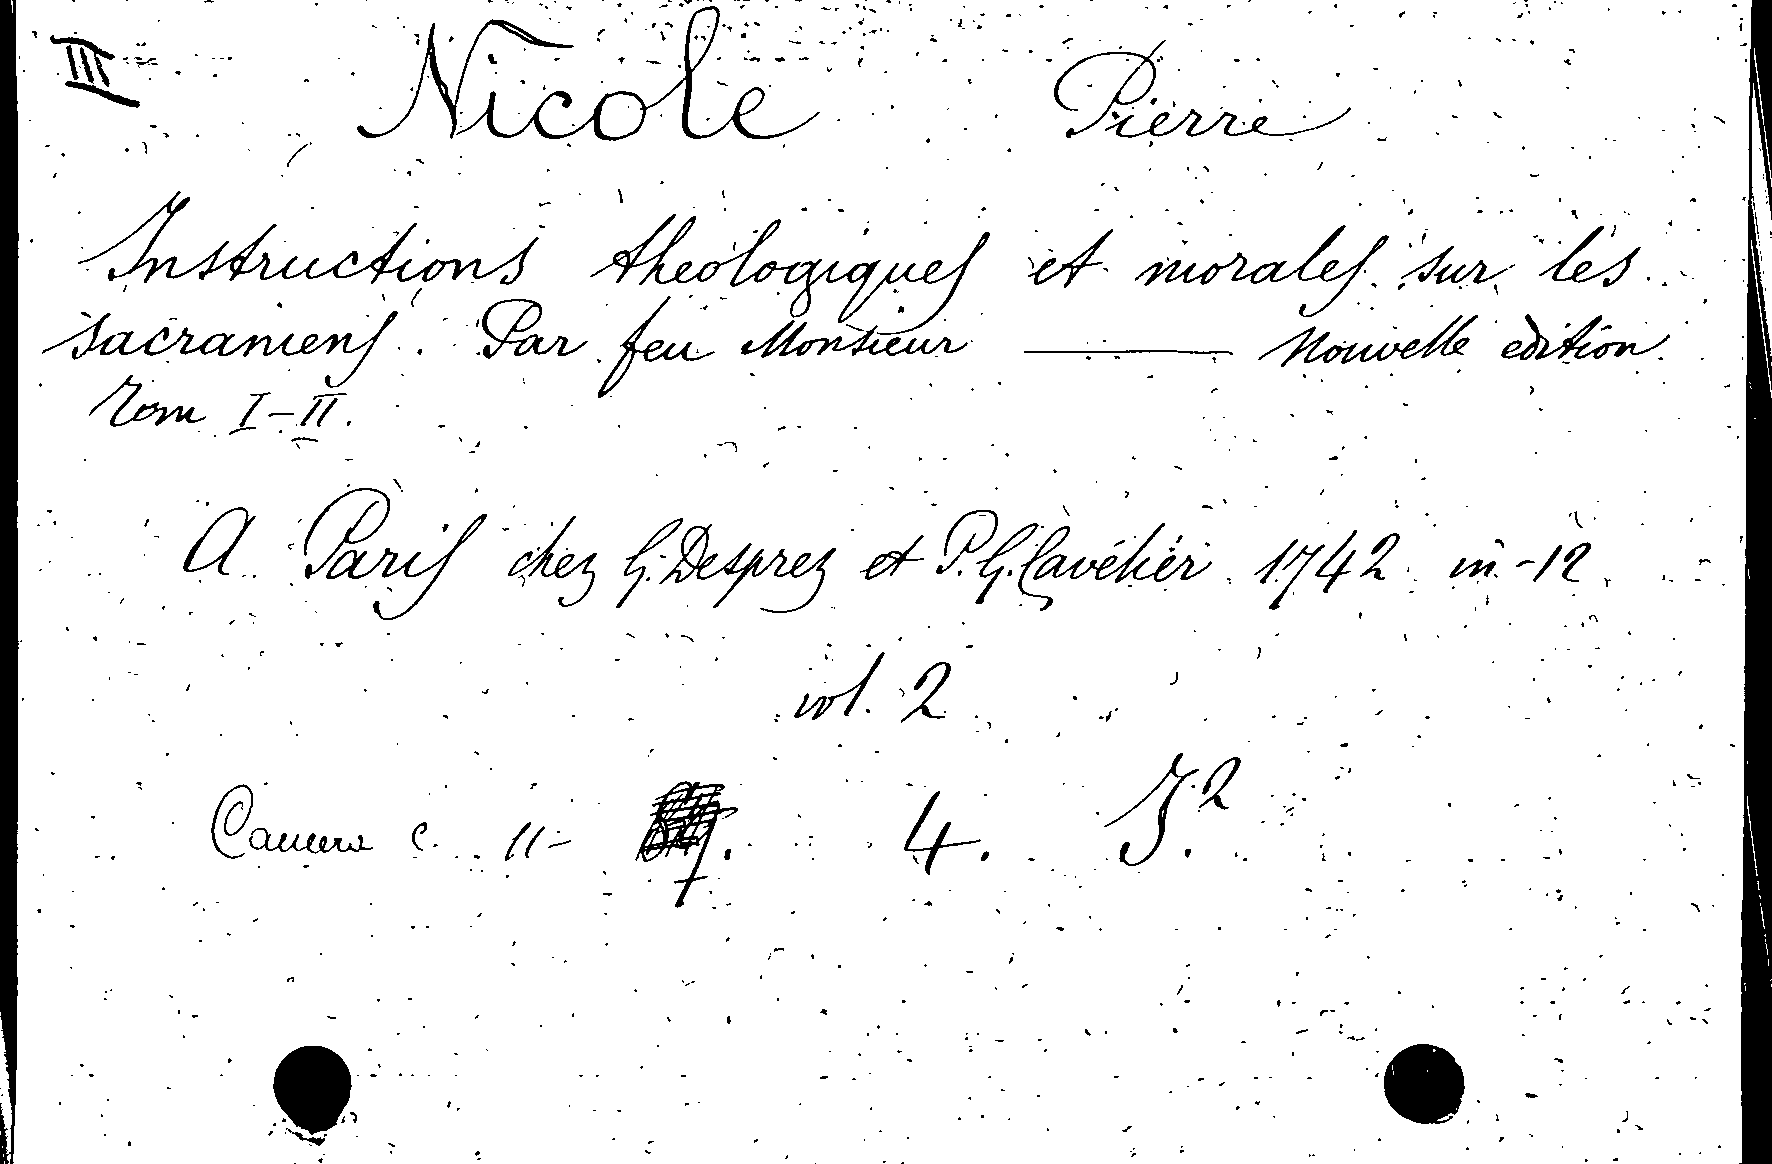 III
Nicole Pierre
Instructions theologiques et morales sur les
sacramens. Par feu Monsieur ——— Nouvelle edition.
Tom I-II.
A Paris chez G. Desprez et P. G. Cavelier 1742 in-12
vol. 2
Camera C. 11- 4. J.2